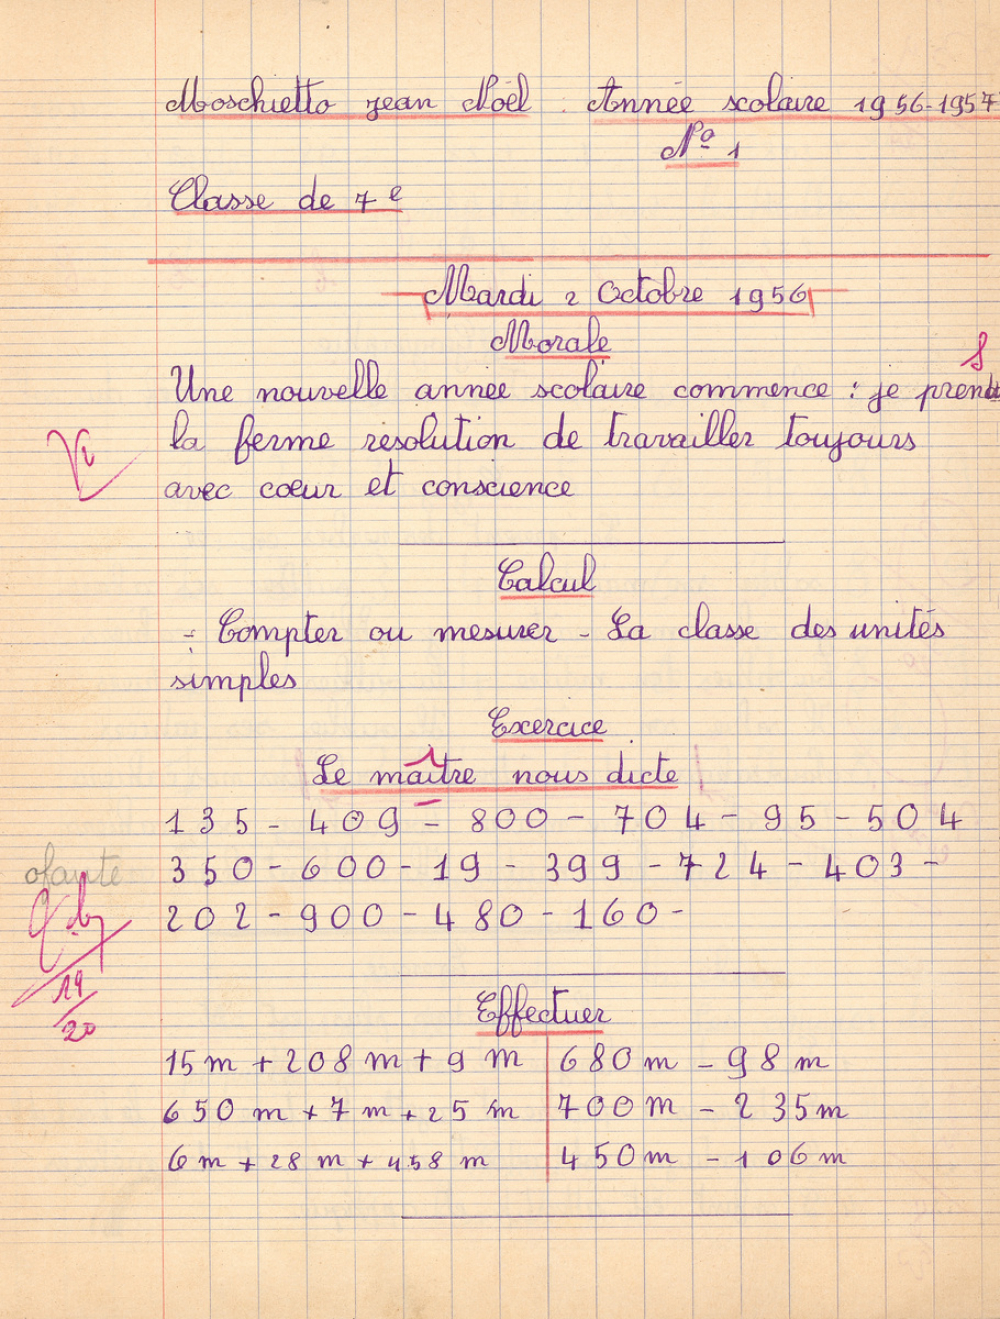 Moschietto jean Noël. Année scolaire 1956-1957
Nº 1
Classe de 7e
Mardi 2 Octobre 1956
Morale
s
Une nouvelle année scolaire commence : je prend
la ferme résolution de travailler toujours
avec coeur et conscience
Calcul
- Compter ou mesurer - La classe des unités
simples
Exercice
Le maître nous dicte
135 - 409 - 800 - 704 - 95 - 504
350 - 600 - 19 - 399 - 724 - 403 -
202 - 900 - 480 - 160 -
19
20
Effectuer
15 m + 208 m + 9 m
650 m + 7 m + 25 m
6 m + 28 m + 458 m
680 m - 98 m
700 m - 235 m
450 m - 106 m